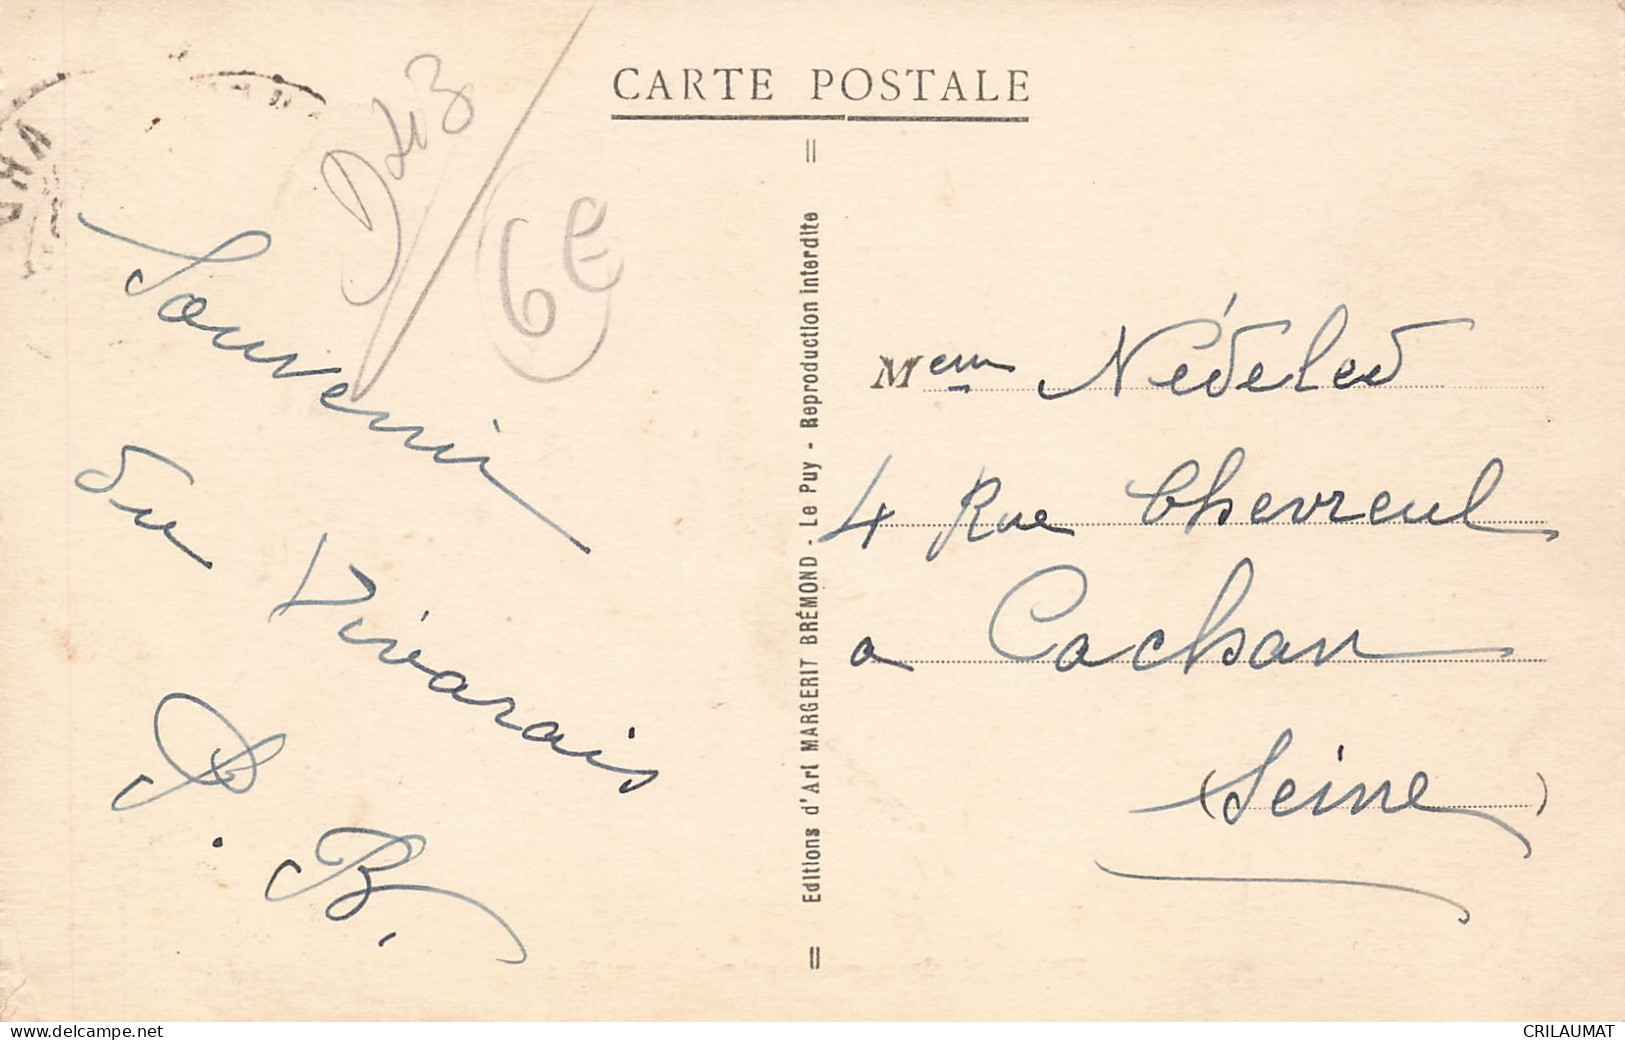 CARTE POSTALE
D43
6€
Souvenir
du Vivarais
P. B.
Editions d'Art MARGERIT BRÉMOND - Le Puy - Reproduction interdite
Mem Nédeled
4 Rue Chevreul
a Cachan
(Seine)
www.delcampe.net
CRILAUMAT